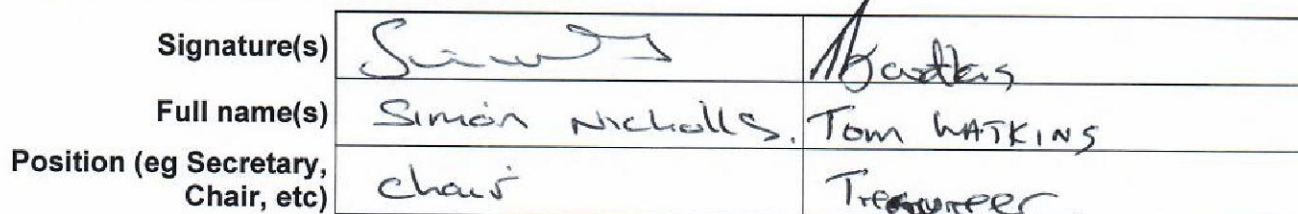 Signature(s)
Full name(s) Simon Nicholls. Tom WATKINS
Position (eg Secretary,
Chair, etc) Chair Treasurer